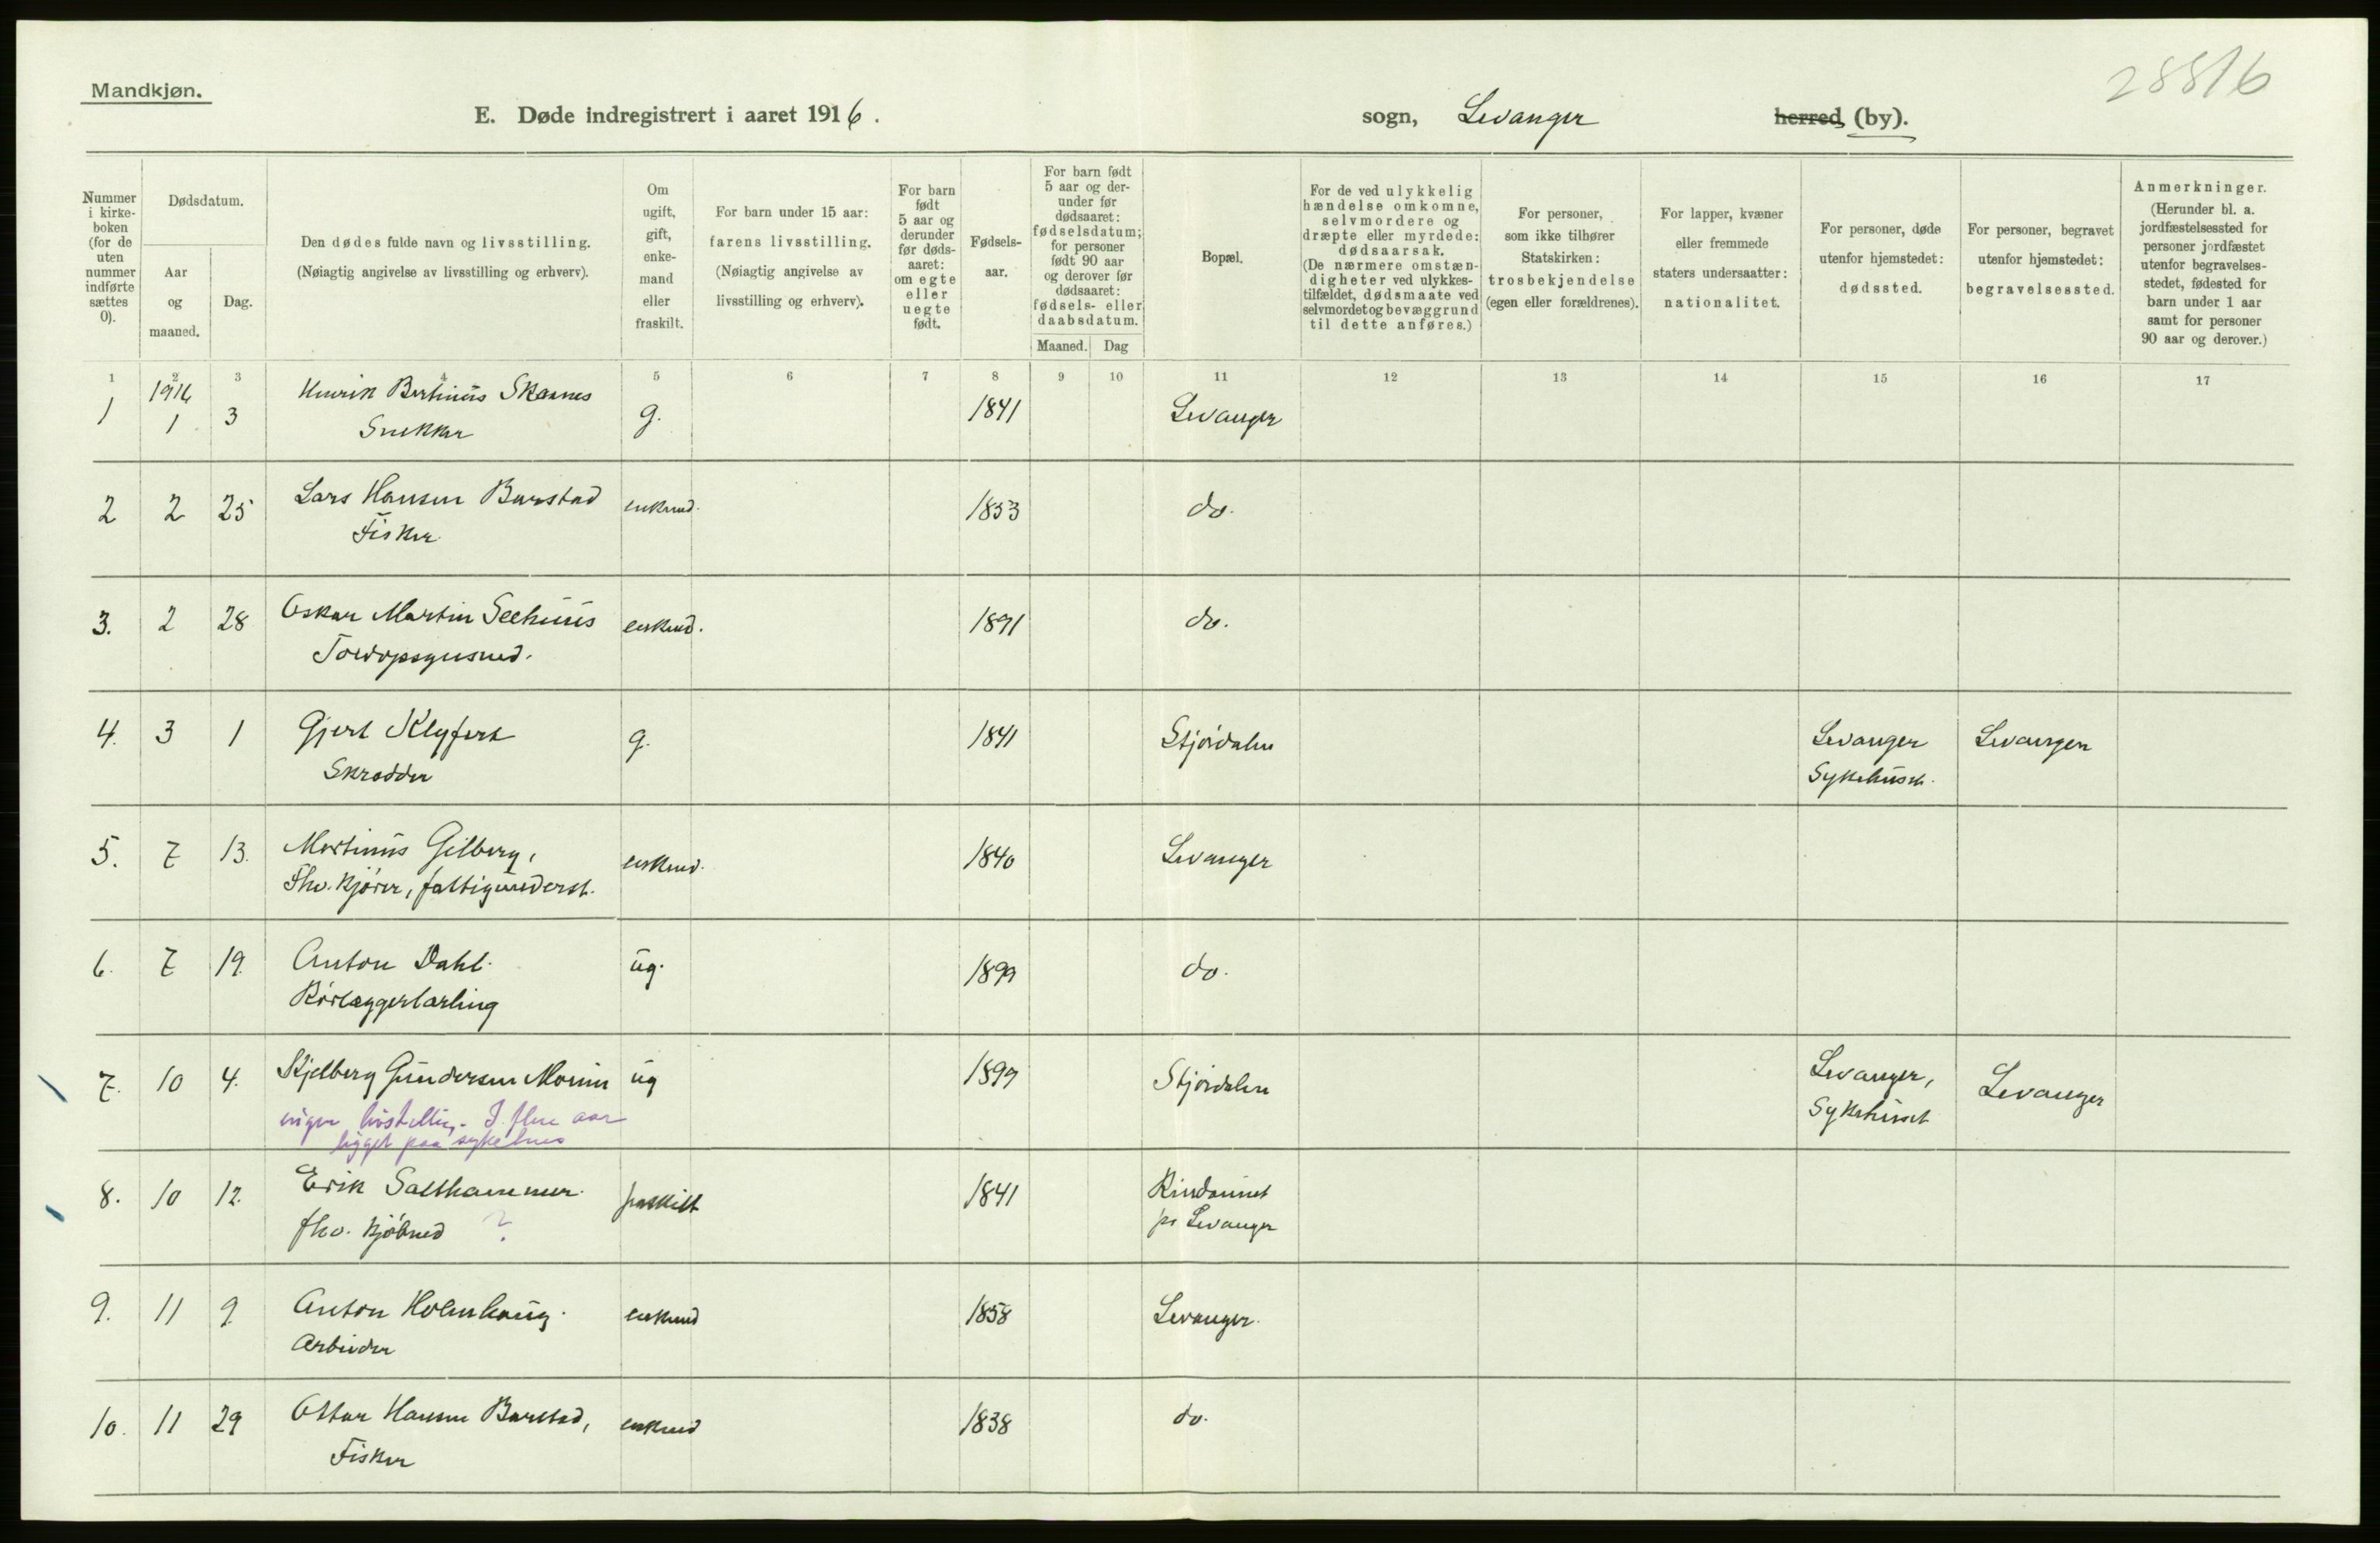 28816
Mandkjøn.
E. Døde indregistrert i aaret 1916.
sogn, Levanger herred (by).
Nummer i kirkeboken (for de uten nummer indførte sættes 0).
Dødsdatum.
Aar og maaned.
Dag.
Den dødes fulde navn og livsstilling.
(Nøiagtig angivelse av livsstilling og erhverv).
Om ugift, gift, enkemand eller fraskilt.
For barn under 15 aar: farens livsstilling.
(Nøiagtig angivelse av livsstilling og erhverv).
For barn født 5 aar og derunder før dødsaaret: om egte eller uegte født.
Fødselsaar.
For barn født 5 aar og derunder før dødsaaret: fødselsdatum; for personer født 90 aar og derover før dødsaaret: fødsels- eller daabsdatum.
Maaned. Dag
Bopæl.
For de ved ulykkelig hændelse omkomne, selvmordere og dræpte eller myrdede: dødsaarsak.
(De nærmere omstændigheter ved ulykkestilfældet, dødsmaate ved selvmordet og bevæggrund til dette anføres.)
For personer, som ikke tilhører Statskirken: trosbekjendelse (egen eller forældrenes).
For lapper, kvæner eller fremmede staters undersaatter: nationalitet.
For personer, døde utenfor hjemstedet: dødssted.
For personer, begravet utenfor hjemstedet: begravelsessted.
Anmerkninger.
(Herunder bl. a. jordfæstelsessted for personer jordfæstet utenfor begravelsesstedet, fødested for barn under 1 aar samt for personer 90 aar og derover.)
1 2 3 4 5 6 7 8 9 10 11 12 13 14 15 16 17
1916
1 1 3 Henrik Bertinius Skaanes g. 1841 Levanger
Snekker
2 2 25 Lars Hansen Barstad enkemd. 1853 do.
Fisker
3. 2 28 Oskar Martin Seehuus enkemd. 1891 do.
4. 3 1 Gjert Klyfert g. 1841 Stjørdalen Levanger Levanger
Skrædder Sykehuset.
5. 7 13. Martinus Gilberg, enkemd. 1840 Levanger
Fhv. Kjører, fattigunderst.
6. 7 19. Anton Dahl. ug. 1899 do.
Rørlæggerlærling
7. 10 4. Kjelberg Gundersen Moum ug 1899 Stjørdalen Levanger, Levanger
Sykehuset
ingen livsstilling. I flere aar
ligget paa sykehus
8. 10 12. Erik Salthammer. fraskilt 1841 Rindannet
fhv. Kjøbmd ? pr Levanger
9. 11 9. Anton Holmhaug. enkemd 1858 Levanger.
Arbeider
10. 11 29 Ottar Hansen Barstad, enkemd 1838 do.
Fisker